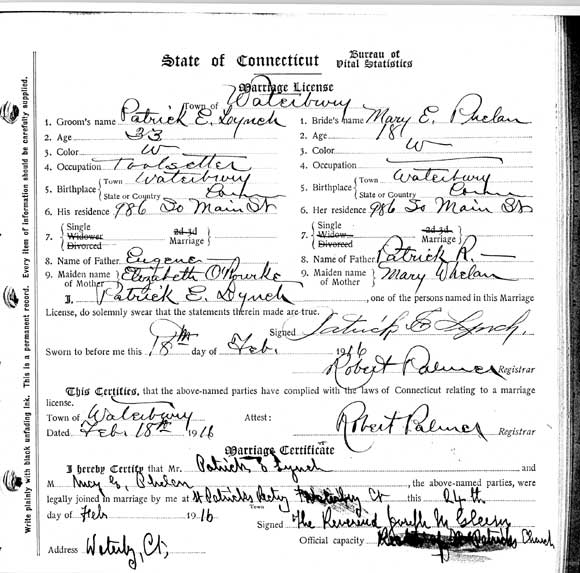 State of Connecticut Bureau of Vital Statistics
Marriage License
Town of Waterbury
1. Groom's name Patrick E. Lynch
2. Age 33
3. Color W
4. Occupation Toolsetter
5. Birthplace { Town Waterbury
State or Country Conn
6. His residence 986 So Main St
7. { Single Widower Divorced } 2d-3d Marriage }
8. Name of Father Eugene
9. Maiden name of Mother } Elizabeth O'Rourke
1. Bride's name Mary E. Phelan
2. Age 18
3. Color W
4. Occupation
5. Birthplace { Town Waterbury
State or Country Conn
6. Her residence 986 So Main St
7. { Single Widow Divorced } 2d-3d Marriage }
8. Name of Father Patrick R.
9. Maiden name of Mother } Mary Whelan
I, Patrick E. Lynch, one of the persons named in this Marriage
License, do solemnly swear that the statements therein made are true.
Signed Patrick E Lynch.
Sworn to before me this 18th day of Feb. 1916
Robert Palmer Registrar
This Certifies, that the above-named parties have complied with the laws of Connecticut relating to a marriage
license.
Town of Waterbury Attest:
Dated Feb. 18th 1916 Robert Palmer Registrar
Marriage Certificate
I hereby Certify that Mr. Patrick E Lynch and
M Mary E. Phelan, the above-named parties, were
legally joined in marriage by me at St Patricks Rectory Town Waterbury Ct this 24th
day of Feb 1916 Signed The Reverend Joseph M Gleeson
Official capacity Patricks Church
Address Waterby, Ct.
Write plainly with black unfading ink. This is a permanent record. Every item of information should be carefully supplied.